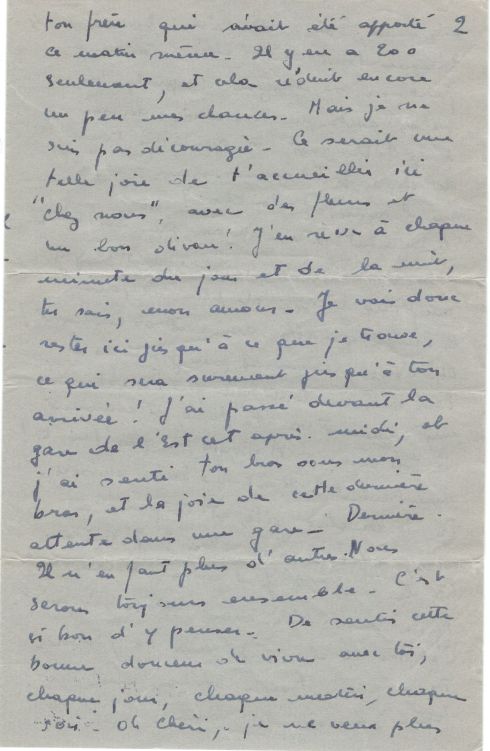 ton frère qui avait été apporté 2
ce matin même. Il y en a 200
seulement, et cela réduit encore
un peu mes chances. Mais je ne
suis pas découragée. Ce serait une
telle joie de t'accueillir ici
"chez nous", avec des fleurs et
un bon divan! J'en rêve à chaque
minute du jour et de la nuit,
tu sais, mon amour. Je vais donc
rester ici jusqu'à ce que je trouve,
ce qui sera surement jusqu'à ton
arrivée! J'ai passé devant la
gare de l'Est cet après-midi, et
j'ai senti ton bras sous mon
bras, et la joie de cette dernière
attente dans une gare. Dernière.
Il n'en faut plus d'autres. Nous
serons toujours ensemble. C'est
si bon d'y penser. De sentir cette
bonne douceur de vivre avec toi,
chaque jour, chaque matin, chaque
soir. Oh chéri, je ne veux plus